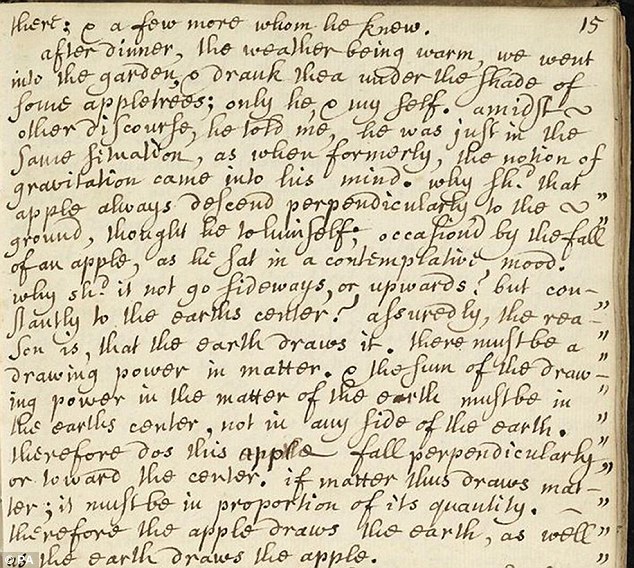 there; & a few more whom he knew. 15
after dinner, the weather being warm, we went
into the garden, & drank thea under the shade of
some appletrees; only he, & my self. amidst ~
other discourse, he told me, he was just in the
same situation, as when formerly, the notion of
gravitation came into his mind. why sh.d that
apple always descend perpendicularly to the ~ "
ground, thought he to himself; occasion'd by the fall
of an apple, as he sat in a contemplative mood.
why sh.d it not go sideways, or upwards? but con- "
stantly to the earths center? assuredly, the rea- "
son is, that the earth draws it. there must be a "
drawing power in matter. & the sum of the draw- "
ing power in the matter of the earth must be in "
the earths center, not in any side of the earth. "
therefore dos this apple fall perpendicularly, "
or toward the center. if matter thus draws mat- "
ter; it must be in proportion of its quantity. - "
therefore the apple draws the earth, as well "
as the earth draws the apple. "
PA